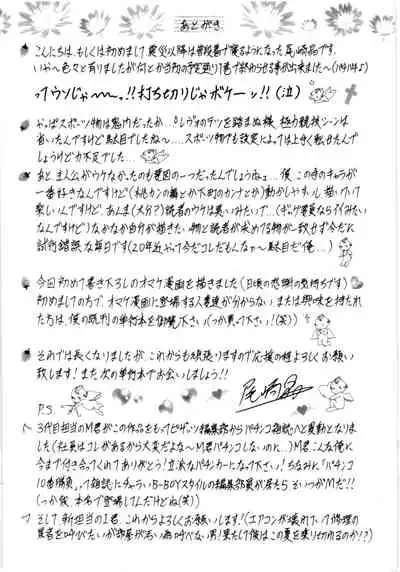 あとがき
こんにちは、もしくは初めまして、震災以降は普段着で寝るようになった尾崎晶です。
いや〜色々と有りましたが何とか当初の予定通り1巻で終わらせる事が出来ました〜(パチパチ♪)
ってウソじゃ〜〜。!!打ち切りじゃボケーッ!!(泣)
やっぱスポーツ物は鬼門だったか…。
省いたんですけど駄目でしたね〜…スポーツ物でも設定によっては上手く転がせたんで
しょうけど力不足でした…。
あと、主人公がウケなかったのも要因の一つだったんでしょうねェ…僕、この時のキャラが
一番好きなんですけど(桃カンの繭とか下町のカンナとか)動かしやすいし描いてて
楽しいんですけど、あんま(大分?)読者のウケは悪いみたいで…(ギャグ要員ならイイみたい
なんですけど)なかなか自分が描きたい物と読者が求めてる物が一致せず今だに
試行錯誤な毎日です(20年近くやって今だコレだもんな〜駄目だ俺…)
今回初めて書き下ろしのオマケ漫画を描きました(日頃の感謝の気持ちです)
初めましての方で、オマケ漫画に登場する人達が分からない、または興味を持たれ
た方は、僕の既刊の単行本を御購入下さい(つか買って下さい!(笑))
それでは長くなりましたが、これからも頑張りますので応援の程よろしくお願い
致します!また次の単行本でお会いしましょう!!
尾崎晶
P.S.
3代目担当のM君がこの作品をもってビザッツ編集部からパチンコ雑誌へと異動となりま
した(社員はコレがあるから大変だよな〜M君パチンコしないのに…)M君こんな俺に
今まで付き合ってくれてありがとう!立派なパチンカーになって下さい!ちなみに「パチンコ
(つか俺、本名で登場してんだけどね(笑))
そして新担当のI君、これからよろしくお願いします!(エアコンが壊れていて修理の
業者を呼べたいが部屋が汚い為呼べない男!果たして僕はこの夏を乗り切れるのか!?)